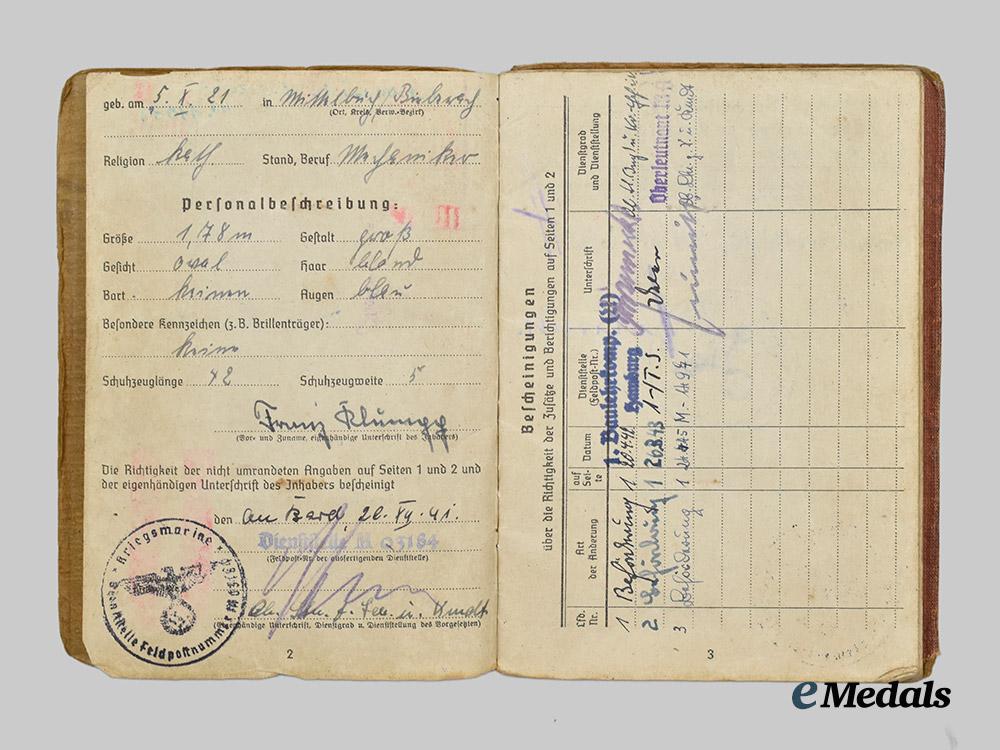 geb. am 5. X. 21 in Mittelbuch Biberach
(Ort, Kreis, Verw.-Bezirk)
Religion kath Stand, Beruf Mechaniker
Personalbeschreibung:
Größe 1,78 m Gestalt groß
Gesicht oval Haar blond
Bart keinen Augen blau
Besondere Kennzeichen (z. B. Brillenträger):
keine
Schuhzeuglänge 42 Schuhzeugweite 5
Franz Klumpp
(Vor- und Zuname, eigenhändige Unterschrift des Inhabers)
Die Richtigkeit der nicht umrandeten Angaben auf Seiten 1 und 2 und
der eigenhändigen Unterschrift des Inhabers bescheinigt
den An Bord, 20. 41.
Dienststelle M 03184
(Feldpost-Nr. der ausfertigenden Dienststelle)
(Eigenhändige Unterschrift, Dienstgrad u. Dienststellung des Vorgesetzten)
Kriegsmarine
Dienststelle Feldpostnummer M 03184
2
Bescheinigungen
über die Richtigkeit der Zusätze und Berichtigungen auf Seiten 1 und 2
Lfd. Nr.
Art der Änderung
auf Sei-te
Datum
Dienststelle (Feldpost-Nr.)
Unterschrift
Dienstgrad und Dienststellung
1 Beförderung 1 20.4.42 1. Baulehrkomp. (M) Hamburg
2 Beförderung 1 20.8.43 1-/T.S. Oberleutnant
3 Beförderung 1 M-
3
eMedals